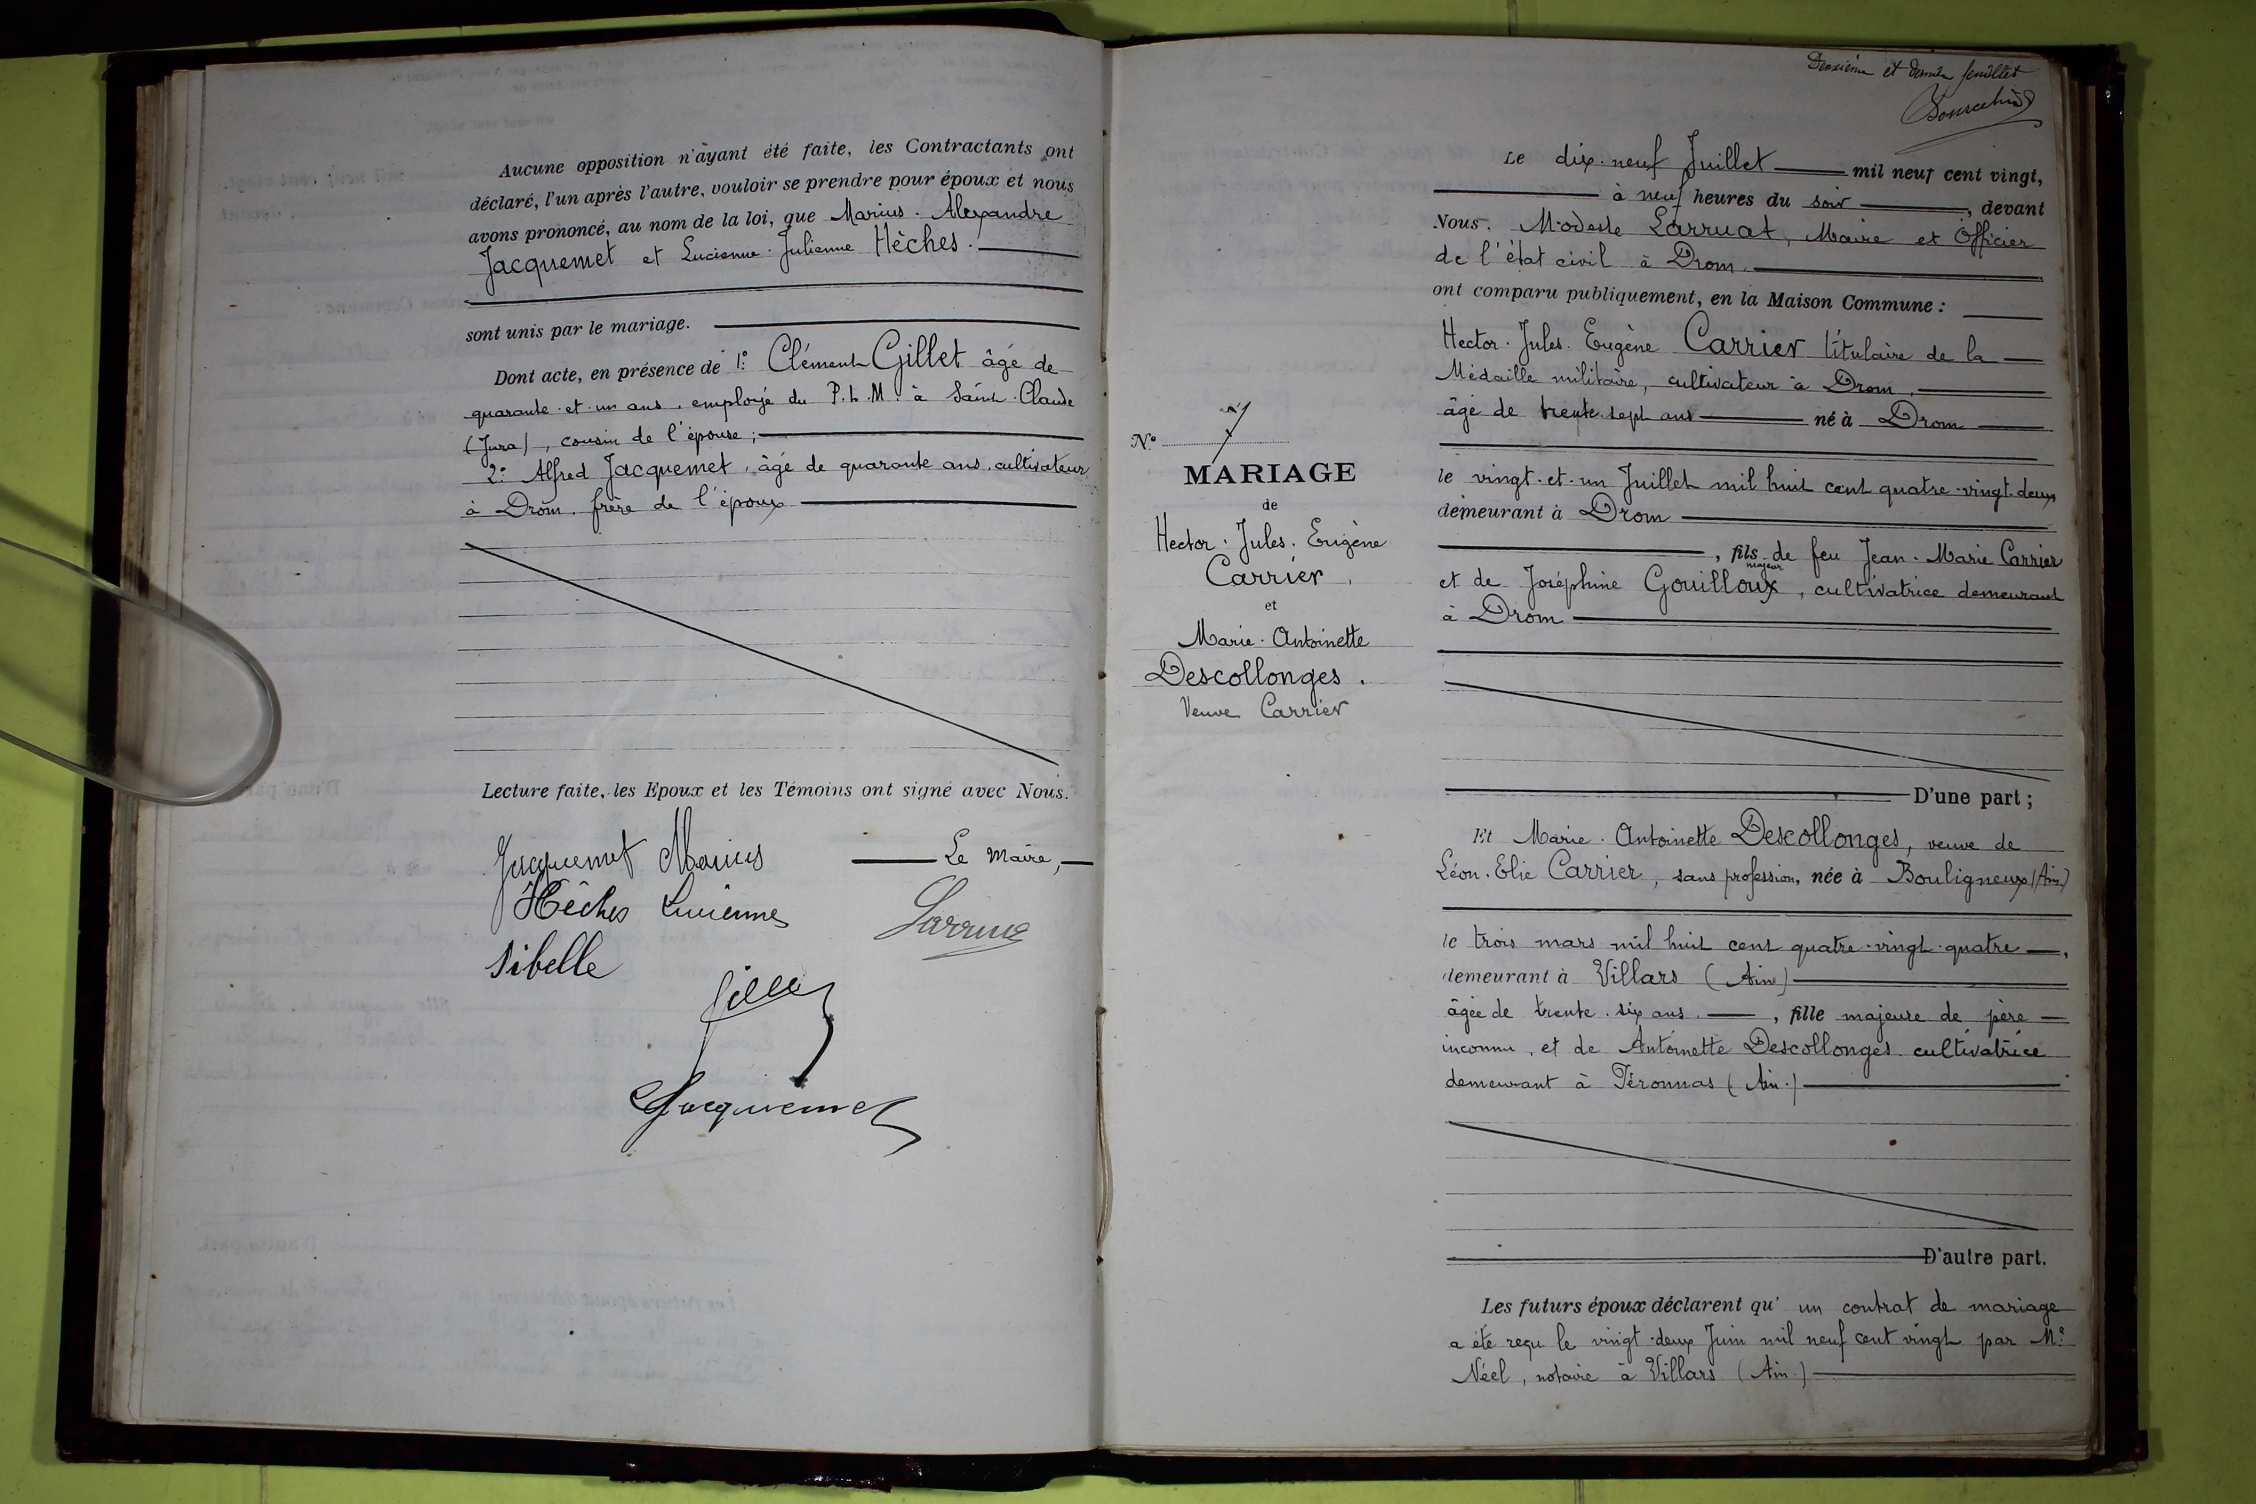 Aucune opposition n'ayant été faite, les Contractants ont
déclaré, l'un après l'autre, vouloir se prendre pour époux et nous
avons prononcé, au nom de la loi, que Marius. Alexandre
Jacquemet et Lucienne. Julienne Hèches.
sont unis par le mariage.
Dont acte, en présence de 1º: Clément Gillet âgé de
quarante et un ans, employé du P.L.M. à Saint-Claude
(Jura), cousin de l'épouse;
2º: Alfred Jacquemet, âgé de quarante ans, cultivateur
à Drom, frère de l'époux
Lecture faite, les Epoux et les Témoins ont signé avec Nous.
Jacquemet Marius
Le Maire,
Hèches Lucienne
Larruat
Sibelle
Gillet
Jacquemet
Deuxième et dernier feuillet
Nº
MARIAGE
de
Hector. Jules. Eugène
Carrier,
et
Marie. Antoinette
Descollonges.
Veuve Carrier
Le dix-neuf Juillet mil neuf cent vingt,
à neuf heures du soir, devant
Nous. Modeste Larruat, Maire et Officier
de l'état civil à Drom.
ont comparu publiquement, en la Maison Commune:
Hector. Jules. Eugène Carrier titulaire de la
Médaille militaire, cultivateur à Drom,
âgé de trente-sept ans né à Drom
le vingt-et-un Juillet mil huit cent quatre-vingt-deux
demeurant à Drom
, fils majeur de feu Jean-Marie Carrier
et de Joséphine Gouilloux, cultivatrice demeurant
à Drom
D'une part;
Et Marie. Antoinette Descollonges, veuve de
Léon. Elie Carrier, sans profession, née à Bouligneux (Ain)
le trois mars mil huit cent quatre-vingt-quatre,
demeurant à Villars (Ain)
âgée de trente-six ans., fille majeure de père
inconnu, et de Antoinette Descollonges cultivatrice
demeurant à Péronnas (Ain.)
D'autre part.
Les futurs époux déclarent qu'un contrat de mariage
a été reçu le vingt-deux Juin mil neuf cent vingt par Me
Néel, notaire à Villars (Ain.)